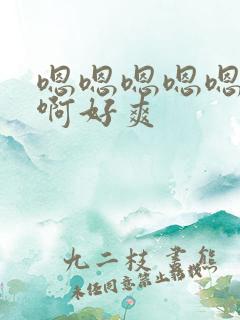 嗯嗯嗯嗯嗯
啊好爽
九二枝 画熊
未经同意禁止转载